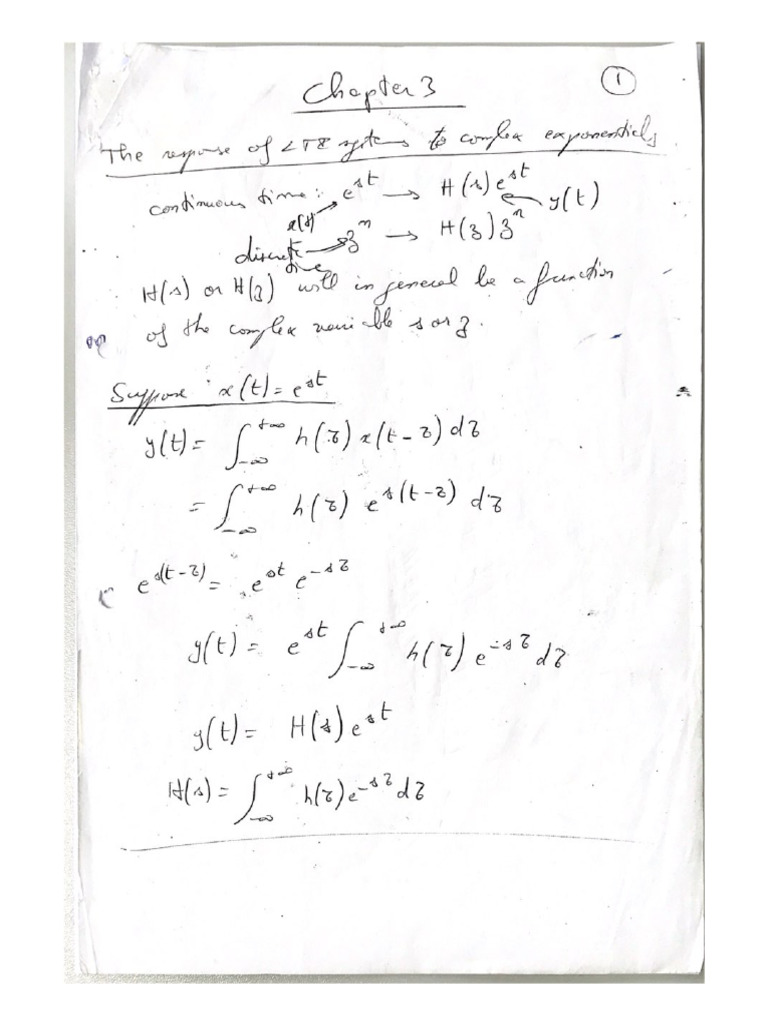 Chapter 3
1
The response of LTI systems to complex exponentials
continuous time: e^{st} → H(s) e^{st} y(t)
x(t)
discrete time z^n → H(z) z^n
H(s) or H(z) will in general be a function
of the complex variable s or z.
Suppose : x(t) = e^{st}
y(t) = ∫_{-∞}^{+∞} h(τ) x(t-τ) dτ
= ∫_{-∞}^{+∞} h(τ) e^{s(t-τ)} dτ
e^{s(t-τ)} = e^{st} e^{-sτ}
y(t) = e^{st} ∫_{-∞}^{+∞} h(τ) e^{-sτ} dτ
y(t) = H(s) e^{st}
H(s) = ∫_{-∞}^{+∞} h(τ) e^{-sτ} dτ